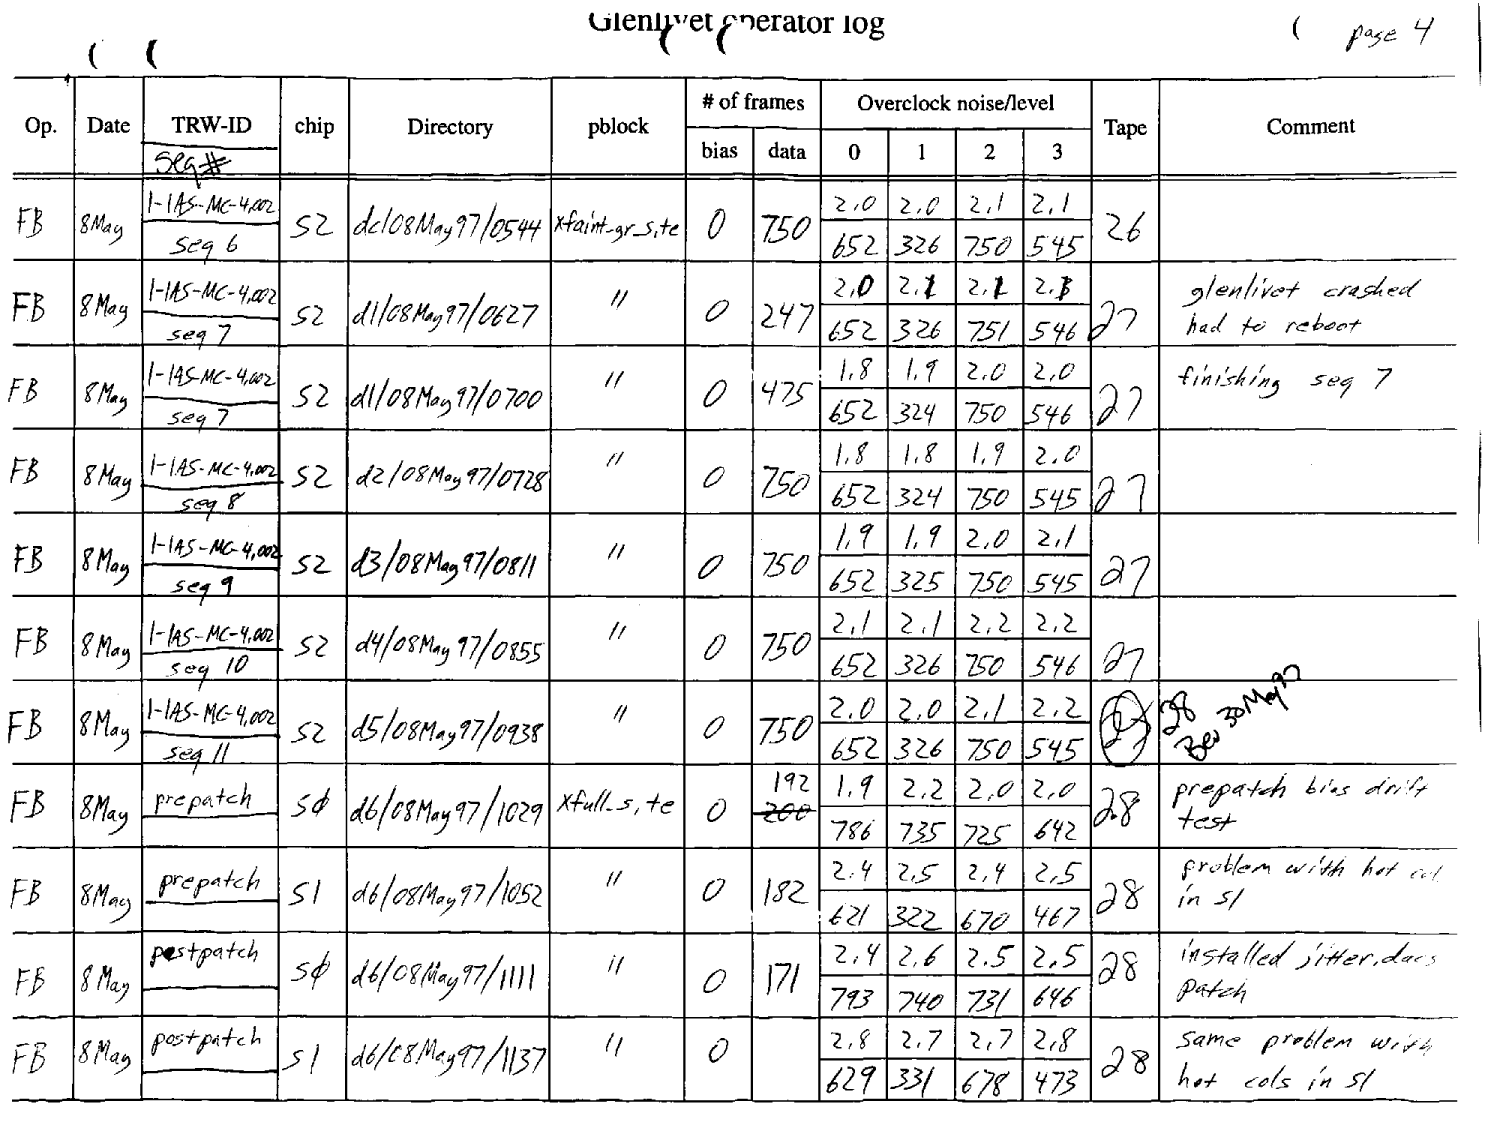 Glenlivet operator log
page 4
Op. Date TRW-ID chip Directory pblock # of frames Overclock noise/level Tape Comment
seq # bias data 0 1 2 3
FB 8May 1-IAS-MC-4.002 S2 dc/08May97/0544 xfaint-gr_s,te 0 750 2.0 2.0 2.1 2.1 26
seq 6 652 326 750 545
FB 8May 1-IAS-MC-4.002 S2 d1/08May97/0627 " 0 247 2.0 2.1 2.1 2.1 27 glenlivet crashed
seq 7 652 326 751 546 had to reboot
FB 8May 1-IAS-MC-4.002 S2 d1/08May97/0700 " 0 475 1.8 1.9 2.0 2.0 27 finishing seq 7
seq 7 652 324 750 546
FB 8May 1-IAS-MC-4.002 S2 d2/08May97/0728 " 0 750 1.8 1.8 1.9 2.0 27
seq 8 652 324 750 545
FB 8May 1-IAS-MC-4.002 S2 d3/08May97/0811 " 0 750 1.9 1.9 2.0 2.1 27
seq 9 652 325 750 545
FB 8May 1-IAS-MC-4.002 S2 d4/08May97/0855 " 0 750 2.1 2.1 2.2 2.2 27
seq 10 652 326 750 546
FB 8May 1-IAS-MC-4.002 S2 d5/08May97/0938 " 0 750 2.0 2.0 2.1 2.2 27 28
seq 11 652 326 750 545 Bev 30May97
FB 8May prepatch SØ d6/08May97/1029 xfull_s,te 0 192 1.9 2.2 2.0 2.0 28 prepatch bias drift
200 786 735 725 642 test
FB 8May prepatch S1 d6/08May97/1052 " 0 182 2.4 2.5 2.4 2.5 28 problem with hot col
621 322 670 467 in S1
FB 8May postpatch SØ d6/08May97/1111 " 0 171 2.4 2.6 2.5 2.5 28 installed jitter,dacs
793 740 731 646 patch
FB 8May postpatch S1 d6/08May97/1137 " 0 2.8 2.7 2.7 2.8 28 same problem with
629 331 678 473 hot cols in S1